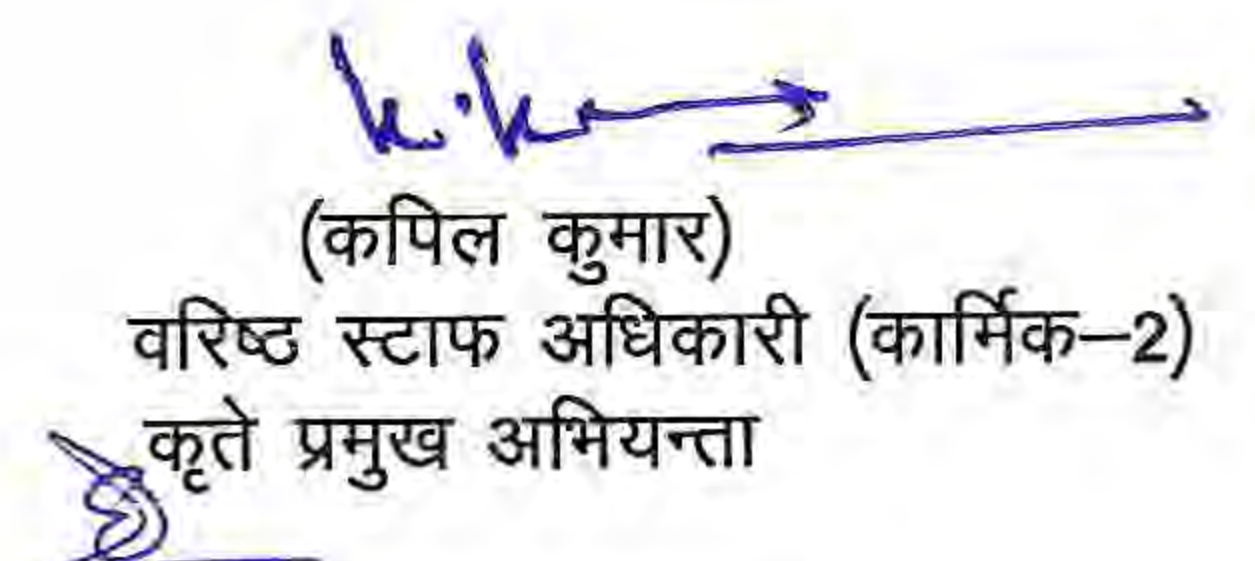 k.k
(कपिल कुमार)
वरिष्ठ स्टाफ अधिकारी (कार्मिक–2)
कृते प्रमुख अभियन्ता